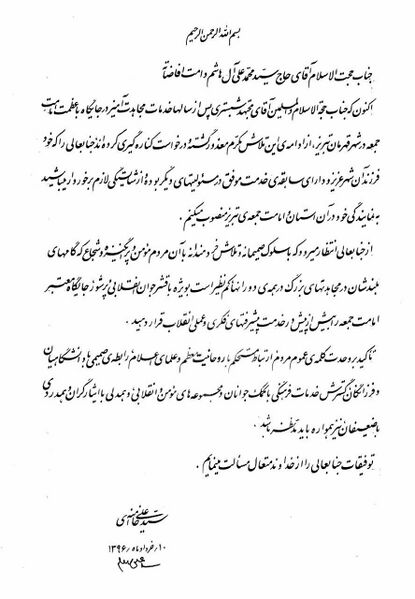 بسم الله الرحمن الرحیم
جناب حجت الاسلام آقای حاج سیّد محمد علی آل هاشم دامت افاضاته
اکنون که جناب حجةالاسلام والمسلمین آقای مجتهد شبستری پس از سالها خدمات مجاهدت‌آمیز در جایگاه باعظمت امامت
جمعه در شهر قهرمان تبریز، از ادامه‌ی این تلاش مکرّم معذور گشته و درخواست کناره‌گیری کرده‌اند جنابعالی را که خود
فرزند آن شهر عزیز و دارای سابقه‌ی خدمت موفق در مسئولیتهای دیگر بوده و از شایستگی لازم برخوردار میباشید
به نمایندگی خود در آن استان و امامت جمعه‌ی تبریز منصوب میکنم.
از جنابعالی انتظار میرود که با سلوک صمیمانه و تلاش خردمندانه با آن مردم مؤمن و پرانگیزه و شجاع که گامهای
بلندشان در مجاهدتهای بزرگ در همه‌ی دورانها کم نظیر است بویژه با قشر جوان انقلابی و پرشور جایگاه معتبر
امامت جمعه را بیش از پیش در خدمت پیشرفتهای فکری و عملی انقلاب قرار دهید.
تأکید بر وحدت کلمه‌ی عموم مردم، ارتباط مستحکم با روحانیت معظم و علمای اعلام، رابطه‌ی صمیمی با دانشگاهیان
و فرزانگان، گسترش خدمات فرهنگی با کمک جوانان و مجموعه‌های مؤمن و انقلابی و همدلی با ایثارگران و همدردی
با ضعیفان نیز همواره باید مدّ نظر باشد.
توفیقات جنابعالی را از خداوند متعال مسألت مینمایم.
سیّد علی خامنه‌ای
۱۰/خردادماه/۱۳۹۶